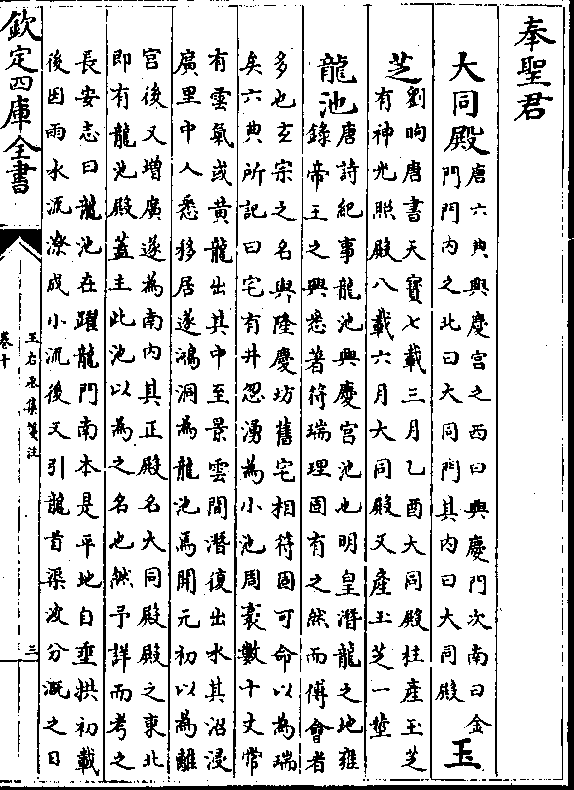 奉聖君
大同殿
唐六典興慶宮之西曰興慶門次南曰金
門門内之北曰大同門其内曰大同殿
玉
芝
劉昫唐書天寶七載三月乙酉大同殿柱產玉芝
有神光照殿八載六月大同殿又產玉芝一莖
龍池
唐詩紀事龍池興慶宮池也明皇潛龍之地雍
錄帝王之興悉著符瑞理固有之然而傅會者
多也玄宗之名與隆慶坊舊宅相符固可命以為瑞
矣六典所記曰宅有井忽湧為小池周袤數十丈常
有雲氣或黄龍出其中至景雲間潛復出水其沼浸
廣里中人悉移居遂鴻洞為龍池焉開元初以為離
宮後又增廣遂為南内其正殿名大同殿殿之東北
即有龍池殿蓋主此池以為之名也然予詳而考之
長安志曰龍池在躍龍門南本是平地自垂拱初載
後因雨水流潦成小流後又引龍首渠波分溉之日
欽定四庫全書
王右丞集箋注
卷十
三